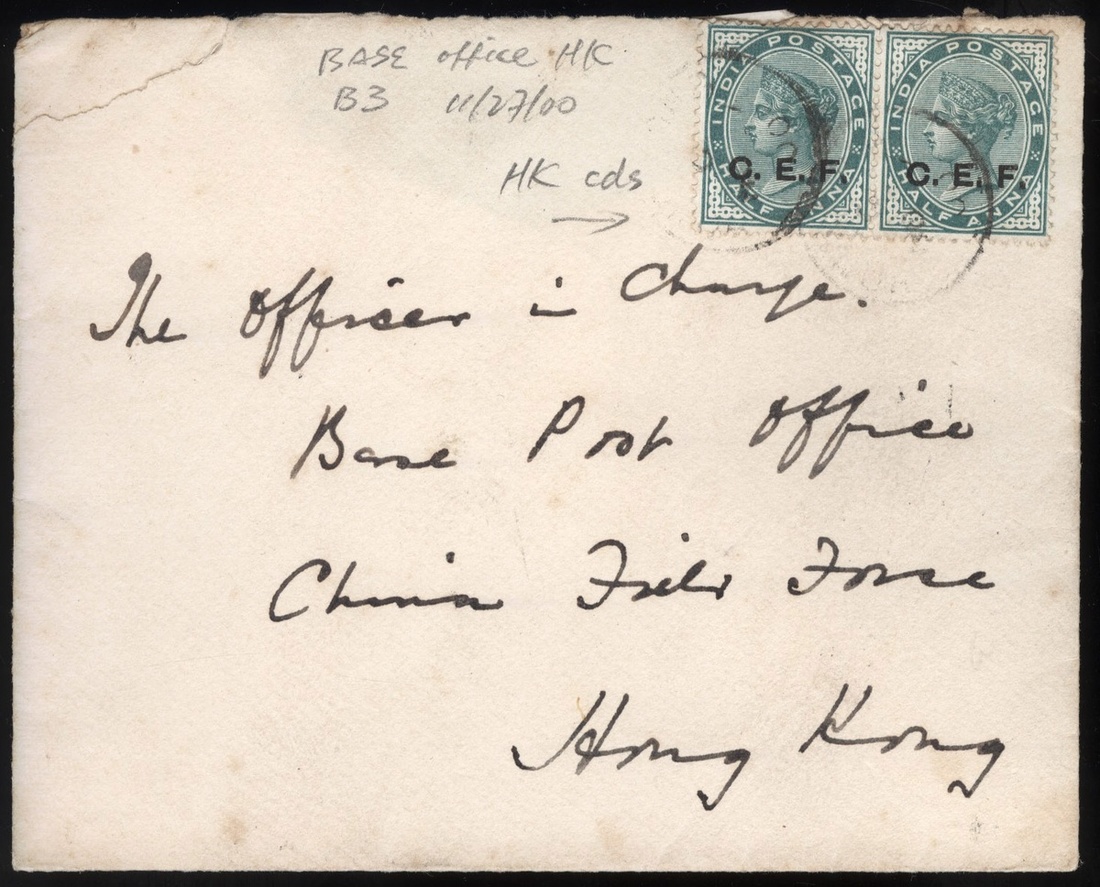 BASE office HK
B3 11/27/00
HK cds
INDIA POSTAGE
HALF ANNA
C. E. F.
INDIA POSTAGE
HALF ANNA
C. E. F.
The Officer in Charge.
Base Post Office
China Field Force
Hong Kong